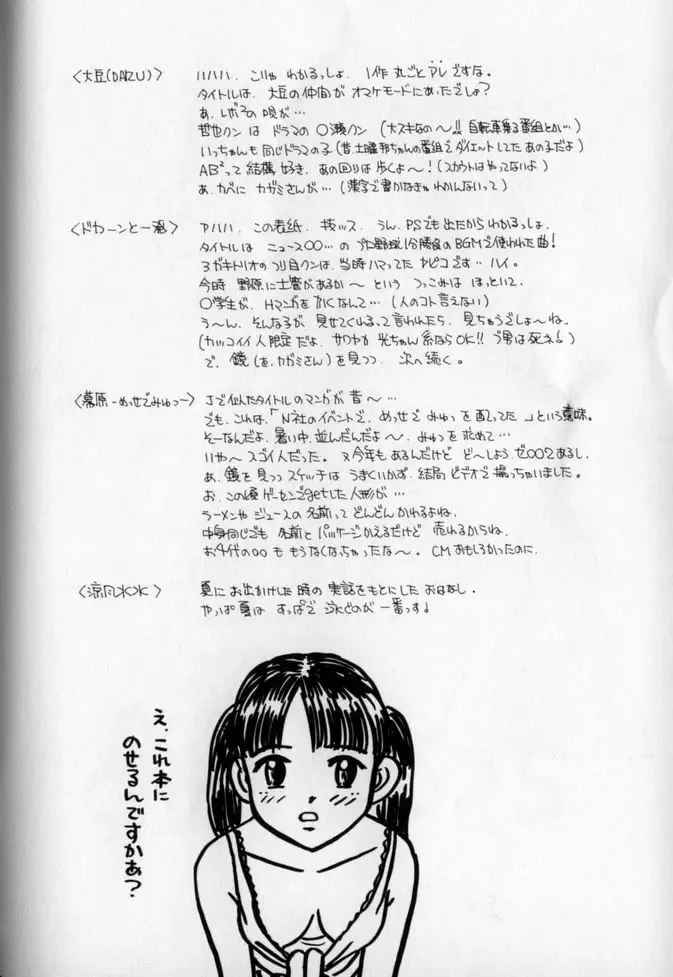 〈大豆(DAIZU)〉
ハハハ、こりゃ わかるっしょ、1作 丸ごと アレですな。
タイトルは、大豆の仲間が オマケモードに あったでしょ?
あ、レボ²の 唄が…
哲也クン は ドラマの ○瀬クン (大スキなの〜!! 自転車乗る番組とか…)
いっちゃんも 同じドラマの子 (昔、土曜邦ちゃんの番組で ダイエットしてた あの子だよ)
AB²って 結構 好き、あの回りは 歩くよ〜! (スカウトは やってないよ)
あ、カベに カガミさんが… (漢字で書かなきゃ わかんないって)
〈ドカーンと一発〉
アハハ、この表紙、技ッス、うん、PSでも出たからわかるっしょ、
タイトルは ニュース○○…の プロ野球1分勝負の BGMで使われた曲!
3ガキトリオの つり目クンは、当時ハマってた ヤピコです… ハイ。
今時 野原に土管があるか〜 という つっこみは ほっといて、
○学生が、Hマンガを かくなんて… (人のコト言えない)
う〜ん、そんな子が 見せてくれるって言われたら、見ちゃうでしょ〜ね、
(カッコイイ人限定だよ、サワヤか 光ちゃん系ならOK!! ブ男は死え!)
で、鏡(を、カガミさん)を見つつ 次へ続く。
〈幕原-めっせでみゅつー〉
Jで似たタイトルのマンガが 昔〜…
でも、これは、「N社のイベントで、めっせで みゅつを配ってた」という意味。
そーなんだよ、暑い中、並んだんだよ〜、みゅつを 求めて…
いや〜 スゴイ人だった。 又今年も あるんだけど ど〜しよう、ゼ○○2あるし、
あ、鏡を見つつ スケッチは うまくいかず、結局 ビデオで撮っちゃいました。
お、この頃 ゲーセンでgetした 人形が…
ラーメンや ジュースの名前って どんどん かわるよね、
中身同じでも 名前と パッケージかえるだけど 売れるからね、
お4代の○○も もうなくなっちゃったな〜。 CMおもしろかったのに、
〈涼風水水〉
夏に お出かけした時の 実話をもとにした おはなし、
やっぱ 夏は すっぱで 泳ぐのが 一番っす!
え、これ本に
のせるんですかあ?